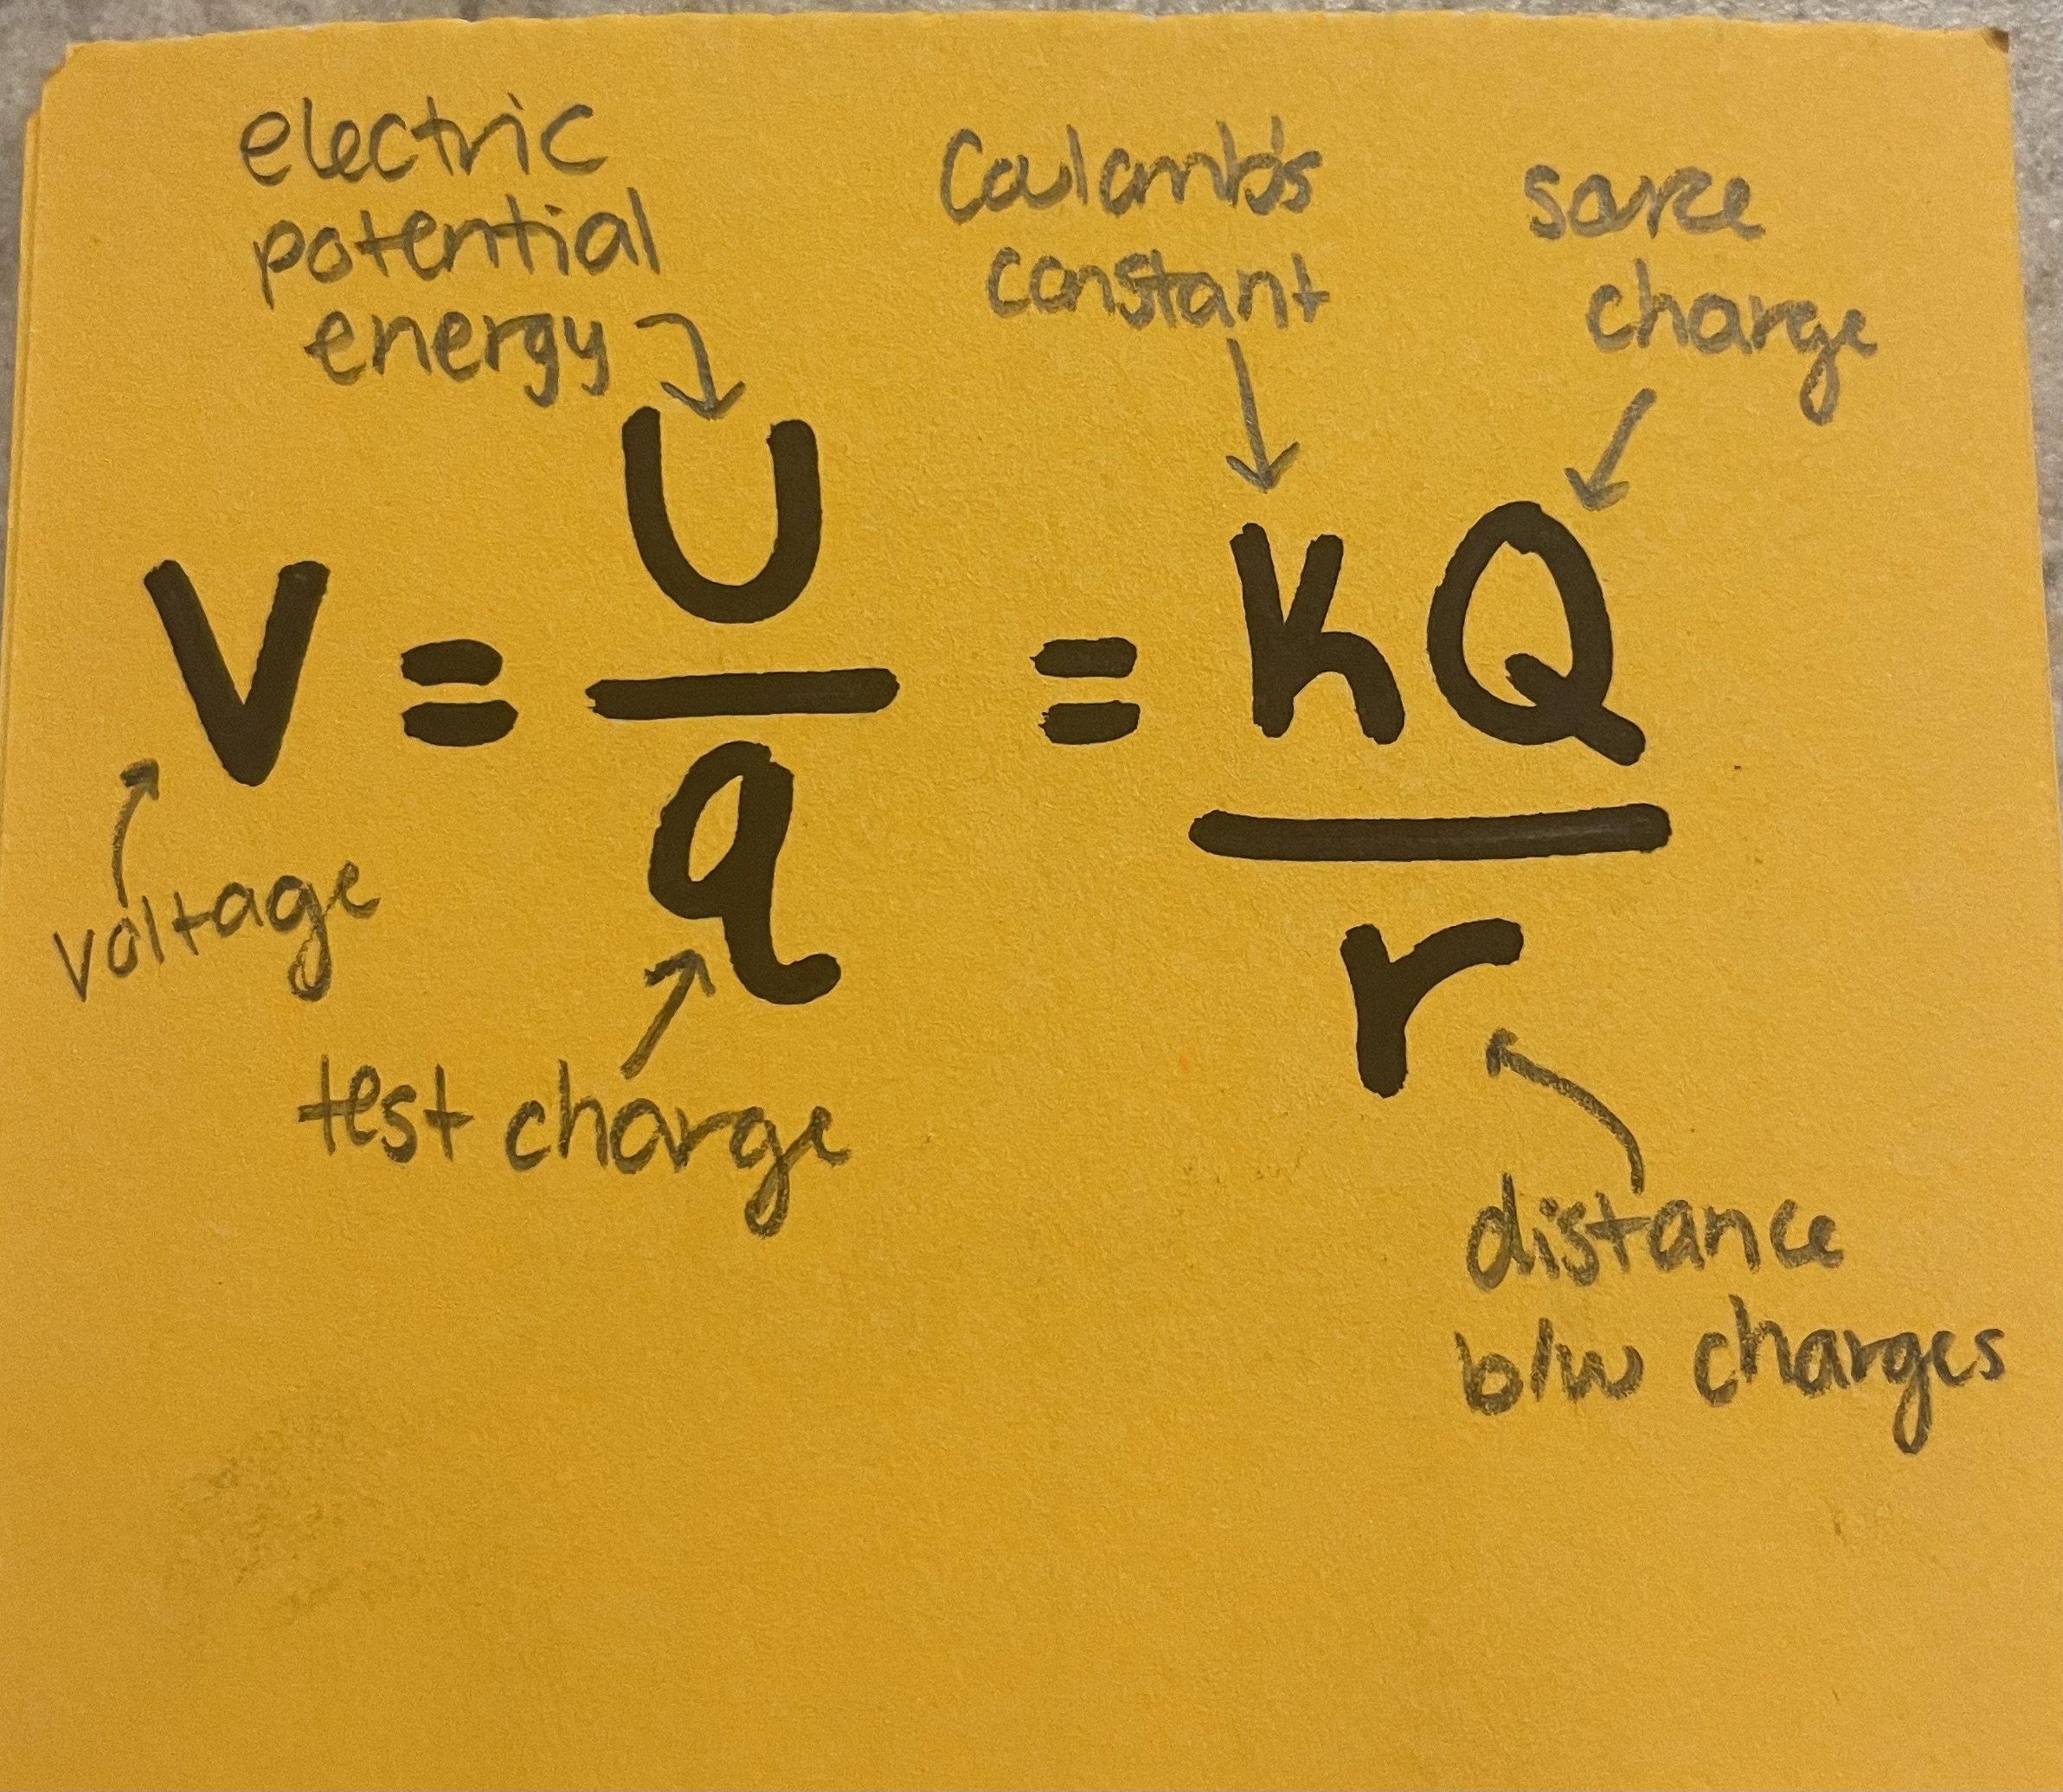 electric
potential
energy
Coulomb's
constant
source
charge
V = U/q = kQ/r
voltage
test charge
distance
b/w charges